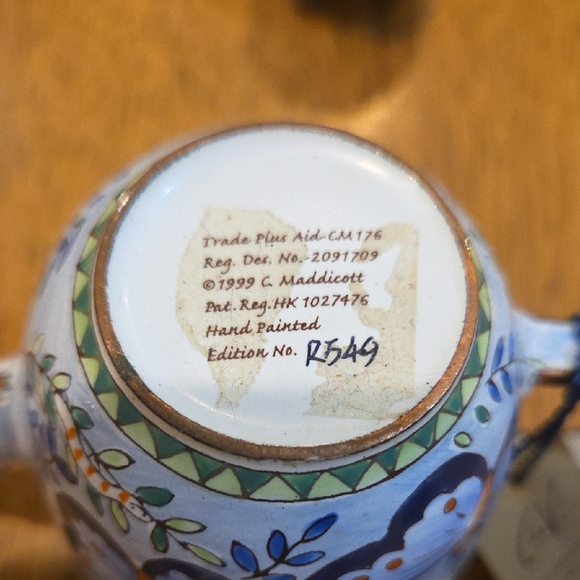 Trade Plus Aid-CM176
Reg. Des. No.-2091709
©1999 C. Maddicott
Pat.Reg.HK 1027476
Hand Painted
Edition No. R549